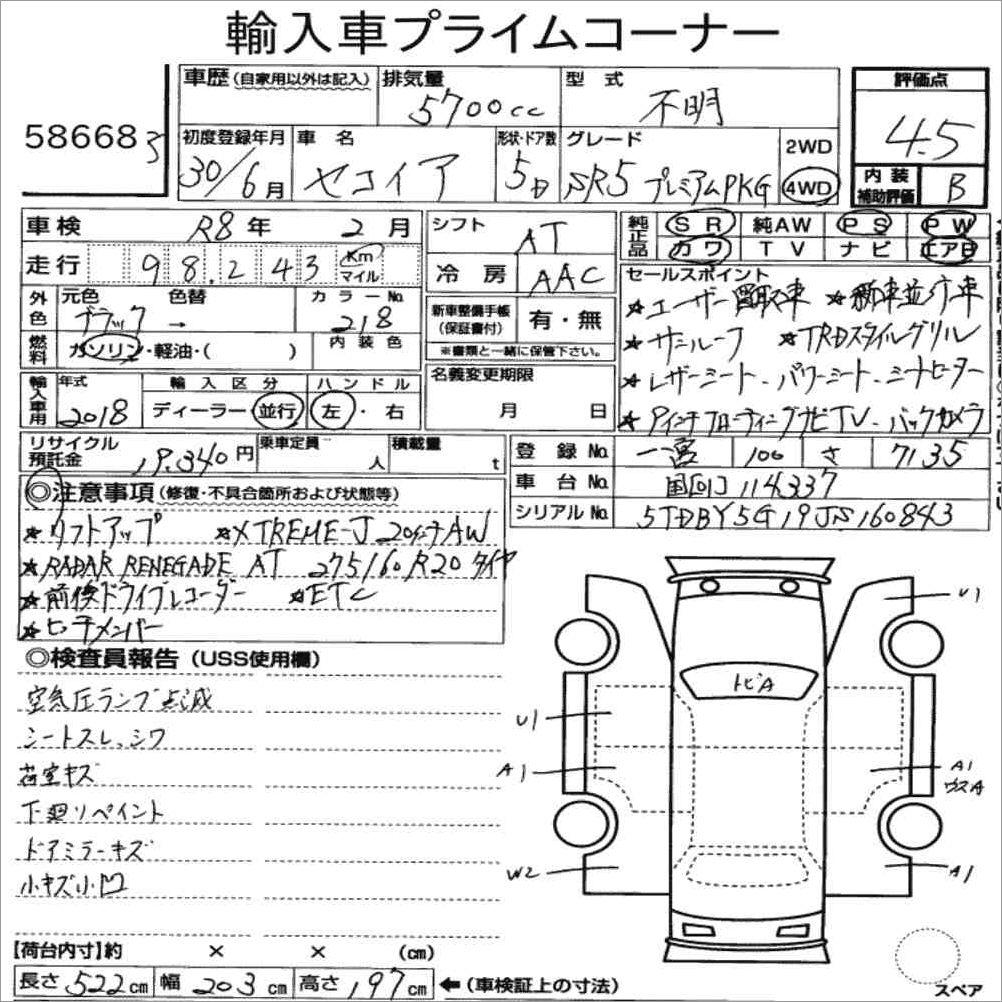 輸入車プライムコーナー
58668 3
車歴 (自家用以外は記入)
排気量 5700cc
型式 不明
評価点 4.5
初度登録年月 30/6月
車名 セコイア
形状・ドア数 5D
グレード SR5 プレミアムPKG
2WD
4WD
内装補助評価 B
車検 R8年 2月
走行 98,243 Km マイル
シフト AT
冷房 AAC
純正品 SR 純AW PS PW
カワ TV ナビ エアB
外色 元色 ブラック → 色替
カラーNo. 218
燃料 ガソリン・軽油・( )
内装色
新車整備手帳(保証書付) 有・無
※書類と一緒に保管下さい。
セールスポイント
★ユーザー買取車 ★新車並行車
★サンルーフ ★TRDスタイルグリル
★レザーシート、パワーシート、シートヒーター
フローティングナビTV、バックカメラ
輸入車用 年式 2018
輸入区分 ディーラー・並行
ハンドル 左・右
名義変更期限 月 日
リサイクル預託金 19,340円
乗車定員 人
積載量 t
登録No. 一宮 100 さ 7135
車台No. 国[01]114337
シリアルNo. 5TDBY5G19JS160843
◎注意事項 (修復・不具合箇所および状態等)
★リフトアップ ★XTREME-J 20インチAW
★RADAR RENEGADE AT 275/60R20タイヤ
★前後ドライブレコーダー ★ETC
★ヒッチメンバー
◎検査員報告 (USS使用欄)
空気圧ランプ点滅
シートスレ、シワ
荷室キズ
下廻りペイント
ドアミラーキズ
小キズ小凹
U1
トビA
U1
A1
A1
ウスA
W2
A1
【荷台内寸】約 × × (cm)
長さ 522cm 幅 203cm 高さ 197cm ←(車検証上の寸法)
スペア